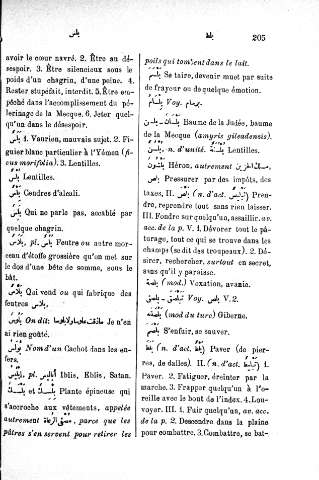 بلس
بلط
205
avoir le cœur navré. 2. Être au dé-
sespoir. 3. Être silencieux sous le
poids d'un chagrin, d'une peine. 4.
Rester stupéfait, interdit. 5. Être em-
pêché dans l'accomplissement du pé-
lerinage de la Mecque. 6. Jeter quel-
qu'un dans le désespoir.
بلس 1. Vaurien, mauvais sujet. 2. Fi-
guier blanc particulier à l'Yémen (fi-
cus morifolia). 3. Lentilles.
بلس Lentilles.
بلس Cendres d'alcali.
بلس Qui ne parle pas, accablé par
quelque chagrin.
بلاس, pl. بلس Feutre ou autre mor-
ceau d'étoffe grossière qu'on met sur
le dos d'une bête de somme, sous le
bât.
بلاس Qui vend ou qui fabrique des
feutres بلاس.
بلوس On dit: Je n'en
ai rien goûté.
بولس Nom d'un Cachot dans les en-
fers.
ابليس, pl. Iblis, Eblis, Satan.
et Plante épineuse qui
s'accroche aux vêtements, appelée
autrement, parce que les
pâtres s'en servent pour retirer les
poils qui tombent dans le lait.
بلسم Se taire, devenir muet par suite
de frayeur ou de quelque émotion.
بلسام Voy. برسام.
بلسان - بلسن Baume de la Judée, baume
de la Mecque (amyris gileadensis).
بلسن, n. d'unité. بلسنة Lentilles.
بلشون Héron, autrement مالك الحزين.
بلص Pressurer par des impôts, des
taxes, II. بلص (n. d'act. تبليص) Pren-
dre, reprendre tout sans rien laisser.
III. Fondre sur quelqu'un, assaillir, av.
acc. de la p. V. 1. Dévorer tout le pâ-
turage, tout ce qui se trouve dans les
champs (se dit des troupeaux). 2. Dé-
sirer, rechercher, surtout en secret,
sans qu'il y paraisse.
بلصة (mod.) Vexation, avanie.
تبلصق - بلصق Voy. بلص V. 2.
(mod du turc) Giberne.
بلصم S'enfuir, se sauver.
بلط (n. d'act. بلط) Paver (de pier-
res, de dalles). II. (n. d'act. تبليط) 1.
Paver. 2. Fatiguer, éreinter par la
marche. 3. Frapper quelqu'un à l'o-
reille avec le bout de l'index. 4. Lou-
voyer. III. 1. Fuir quelqu'un, av. acc.
de la p. 2. Descendre dans la plaine
pour combattre. 3. Combattre, se bat-